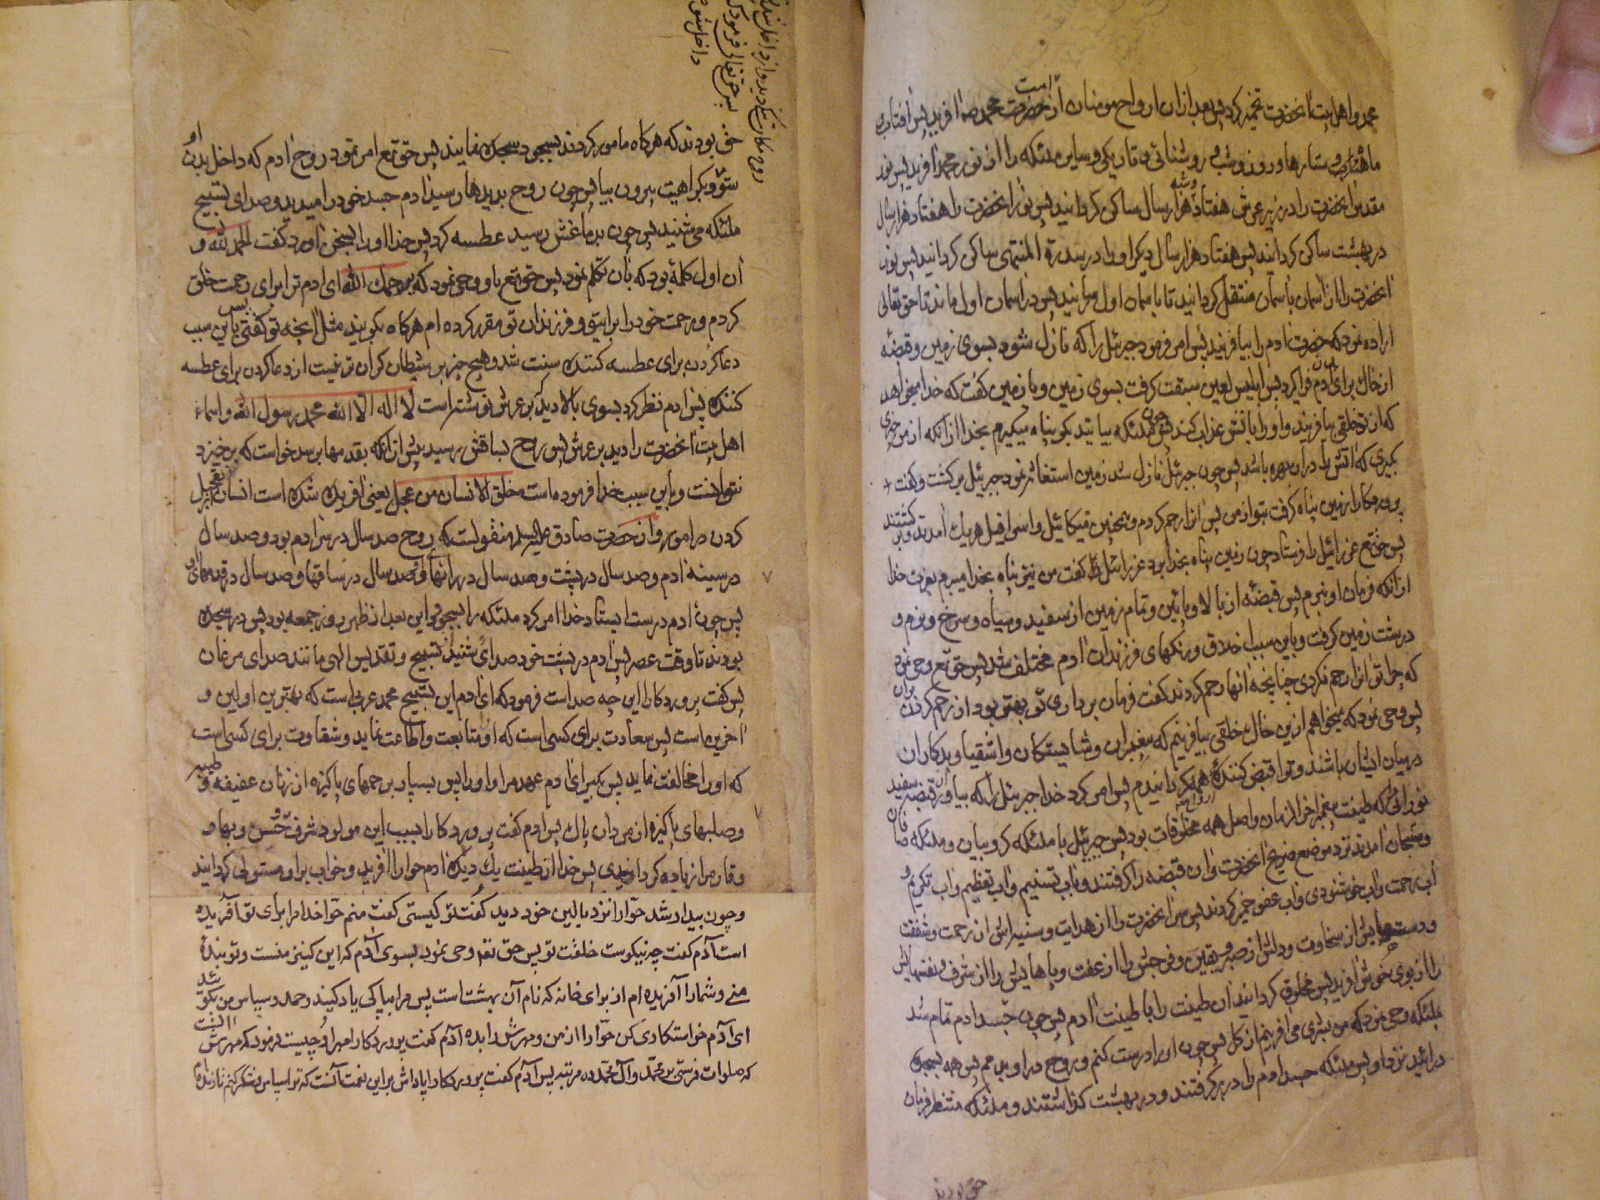 محمد و اهل بیت آنحضرت تمجید کردند پس بعد از آن ارواح مومنان از امت حضرت محمد را آفرید پس آفتاب و
ماهتاب و ستارها و روز و شب و روشنائی و تاریکی و سایر ملئکه را از نور محمد آفرید پس نور
مقدس آنحضرت را در زیر عرش هفتاد و سه هزار سال ساکن کردانید پس نور آنحضرت را هفتاد هزار سال
در بهشت ساکن کردانید پس هفتاد هزار سال دیکر او را در سدرة المنتهی ساکن کردانید پس نور
آنحضرت را از آسمان بآسمان منتقل کردانید تا بآسمان اول رسانید پس در آسمان اول ماند تا حق تعالی
اراده نمود که حضرت آدم را بیافریند پس امر فرمود جبرئیل را که نازل شود بسوی زمین و قبضه
از خاک برای آدم فرا کیرد پس ابلیس لعین سبقت کرفت بسوی زمین و با زمین کفت که خدا میخواهد
که از تو خلقی بیافریند و او را بآتش عذاب کند پس چون ملئکه بیایند بکو پناه میکیرم بخدا از آنکه از من چیزی
بکیری که آتش را در آن بهره باشد پس چون جبرئیل نازل شد زمین استغاثه نمود جبرئیل برکشت و کفت
پروردکارا زمین پناه کرفت بتو از من پس او را رحم کردم و همچنین میکائیل و اسرافیل هر یک آمدند و برکشتند
پس حق تع عزرائیل را فرستاد چون زمین پناه بخدا برد عزرائیل کفت من نیز پناه بخدا میبرم بعزت خدا
از آنکه فرمان او نبرم پس قبضه از بالا و پائین و تمام زمین از سفید و سیاه و سرخ و نرم و
درشت زمین کرفت و باین سبب اخلاق و رنکهای فرزندان آدم مختلف شد پس حق تع وحی نمود
که چرا تو او را رحم نکردی چنانچه آنها رحم کردند کفت فرمان برداری تو بهتر بود از رحم کردن بر آن
پس وحی نمود که میخواهم از این خاک خلقی بیافرینم که پیغمبران و شایستکان و اشقیا و بدکاران
در میان ایشان باشند و ترا قبض کننده همه کردانیدم پس امر کرد خدا جبرئیل را که بیاور آن قبضه سفید
نورانی که طینت پیغمبر آخر الزمان و اصل همه مخلوقات بود پس جبرئیل با ملئکه کروبیان و ملئکه صافان
و مسبحان آمدند نزد موضع ضریح آنحضرت و آن قبضه را کرفتند و بآب تسنیم و آب تعظیم و آب تکریم و
آب رحمت و آب خوشنودی و آب عفو خمیر کردند پس سر آنحضرت را از هدایت و سینه اش از رحمت و شفقت
و دستهایش از سخاوت و دلش از صبر و یقین و فرجش را از عفت و پاهایش را از شرف و نفسهایش
را از بوی خوش آفرید پس مخلوط کردانید آن طینت را با طینت آدم پس چون جسد آدم تمام شد
بملئکه وحی نمود که من بشری می آفرینم از کل پس چون او را درست کنم و روح در او بدمم پس همه بسجده
درآئید نزد او پس ملئکه جسد آدم را در بر کرفتند و در بهشت کذاشتند و ملئکه منتظر فرمان
حق بودند
روح مکان تنکی دید و از داخل شدن
پس حق تعالی فرمود که
داخل شو
حق بودند که هرکاه مامور کردند بسجود سجده نمایند پس حق تع امر نمود روح آدم که داخل بدن او
شو و بکراهیت بیرون بیا پس چون روح بدیدها رسید آدم جسد خود را میدید و صدای تسبیح
ملئکه می شنید پس چون بدماغش رسید عطسه کرد پس خدا او را بسخن آورد کفت الحمد لله و
آن اول کلمه بود که بآن تکلم نمود پس حق تع باو وحی نمود که یرحمک الله ای آدم ترا برای رحمت خلق
کردم و رحمت خود را برای تو و فرزندان تو مقرر کرده ام هرکاه بکویند مثل آنچه تو کفتی پس باین سبب
دعا کردن برای عطسه کننده سنت شد و هیچ چیز بر شیطان کران تر نیست از دعا کردن برای عطسه
کننده پس آدم نظر کرد بسوی بالا دید که بر عرش نوشته است لا اله الا الله محمد رسول الله و اسماء
اهل بیت آنحضرت را دید بر عرش پس روح بساقش رسید پیش از آنکه بقدمها برسد خواست که برخیزد
نتوانست و باین سبب خدا فرموده است خلق الانسان من عجل یعنی آفریده شده است انسان از تعجیل
کردن در امور و از حضرت صادق علیه السلم منقولست که روح صد سال در سر آدم بود و صد سال
در سینه آدم و صد سال در پشت و صد سال در رانها و صد سال در ساقها و صد سال در قدمهای او
پس چون آدم درست ایستاد خدا امر کرد ملئکه را بسجود و این بعد از ظهر روز جمعه بود پس در سجده
بودند تا وقت عصر پس آدم در پشت خود صدای شنید تسبیح و تقدیس الهی مانند صدای مرغان
پس کفت پروردکارا این چه صداست فرمود که ای آدم این تسبیح محمد عربی است که بهترین اولین و
آخرین است پس سعادت برای کسی است که او را متابعت و اطاعت نماید و شقاوت برای کسی است
که او را مخالفت نماید پس بکیر ای آدم عهد مرا و او را پس مسپار بر رحمهای پاکیزه از زنان عفیفه و طیبه
و صلبهای پاکیزه از مردان پاک پس آدم کفت پروردکارا بسبب این مولود شرف و حسن و بها و
وقار مرا زیاده کردانیدی پس خدا از طینت یک دنده آدم حوا را آفرید و خواب بر او مستولی کردانید
و چون بیدار شد حوا را نزد بالین خود دید کفت تو کیستی کفت منم حوا خدا مرا برای تو آفریده
است آدم کفت چه نیکوست خلقت تو پس حق تع وحی نمود بسوی آدم که این کنیز منست و تو بنده
منی و شما را آفریده ام از برای خانه که نام آن بهشت است پس مرا بپاکی یاد کنید و حمد و سپاس من بکوئید
ای آدم خواستکاری کن حوا را از من و مهرش را بده آدم کفت پروردکارا مهر او چیست فرمود که مهرش آنست
که صلوات فرستی بر محمد و آل محمد ده مرتبه پس آدم کفت پروردکارا پاداش بر این نعمت آنست که ترا سپاس و شکر کنم تا زنده ام